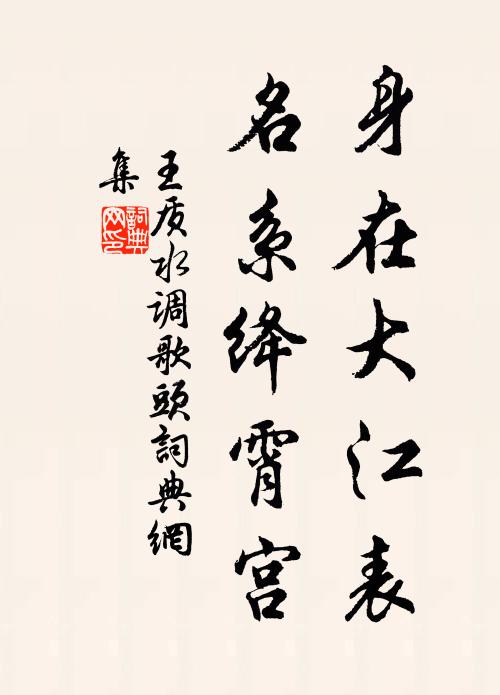 身在大江表
名系绛霄宫
王质水调歌頭詞典網
集
詞典网印